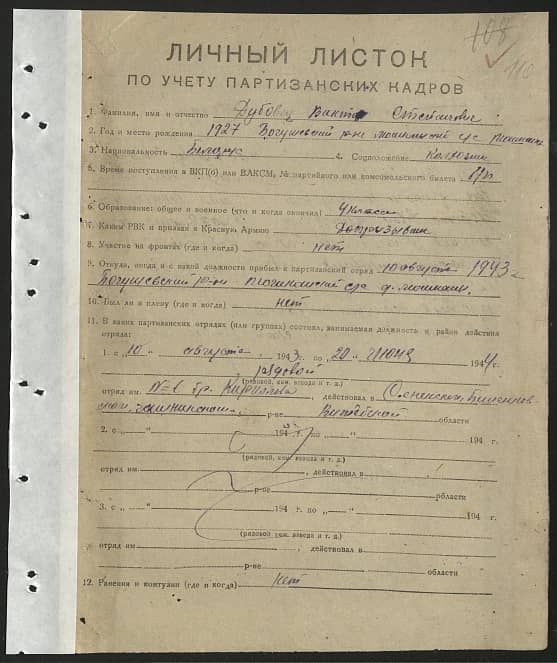 108
110
ЛИЧНЫЙ ЛИСТОК
ПО УЧЕТУ ПАРТИЗАНСКИХ КАДРОВ
1. Фамилия, имя и отчество Дубовец Виктор Степанович
2. Год и место рождения 1927 Богушевский р-н
3. Национальность Белорус 4. Соцположение Колхозник
5. Время поступления в ВКП(б) или ВЛКСМ, № партийного или комсомольского билета
6. Образование: общее и военное (что и когда окончил) 4 класса
7. Каким РВК и призван в Красную Армию Допризывник
8. Участие на фронтах (где и когда) нет
9. Откуда, когда и с какой должности прибыл в партизанский отряд 10 августа 1943 г.
Богушевский р-н с/с д.
10. Был ли в плену (где и когда) нет
11. В каких партизанских отрядах (или группах) состоял, занимаемая должность и район действия
отряда:
1. с „10“ августа 1943 г. по „20“ июня 1944 г.
рядовой
(рядовой, ком. взвода и т. д.)
отряд им. №1 бр. Кириллова, действовал в
р-не Витебской области
2. с „ “ 194 г. по „ “ 194 г.
(рядовой, ком. взвода и т. д.)
отряд им. , действовал в
р-не области
3. с „ “ 194 г. по „ “ 194 г.
(рядовой ком. взвода и т. д.)
отряд им. , действовал в
р-не области
12. Ранения и контузии (где и когда) нет